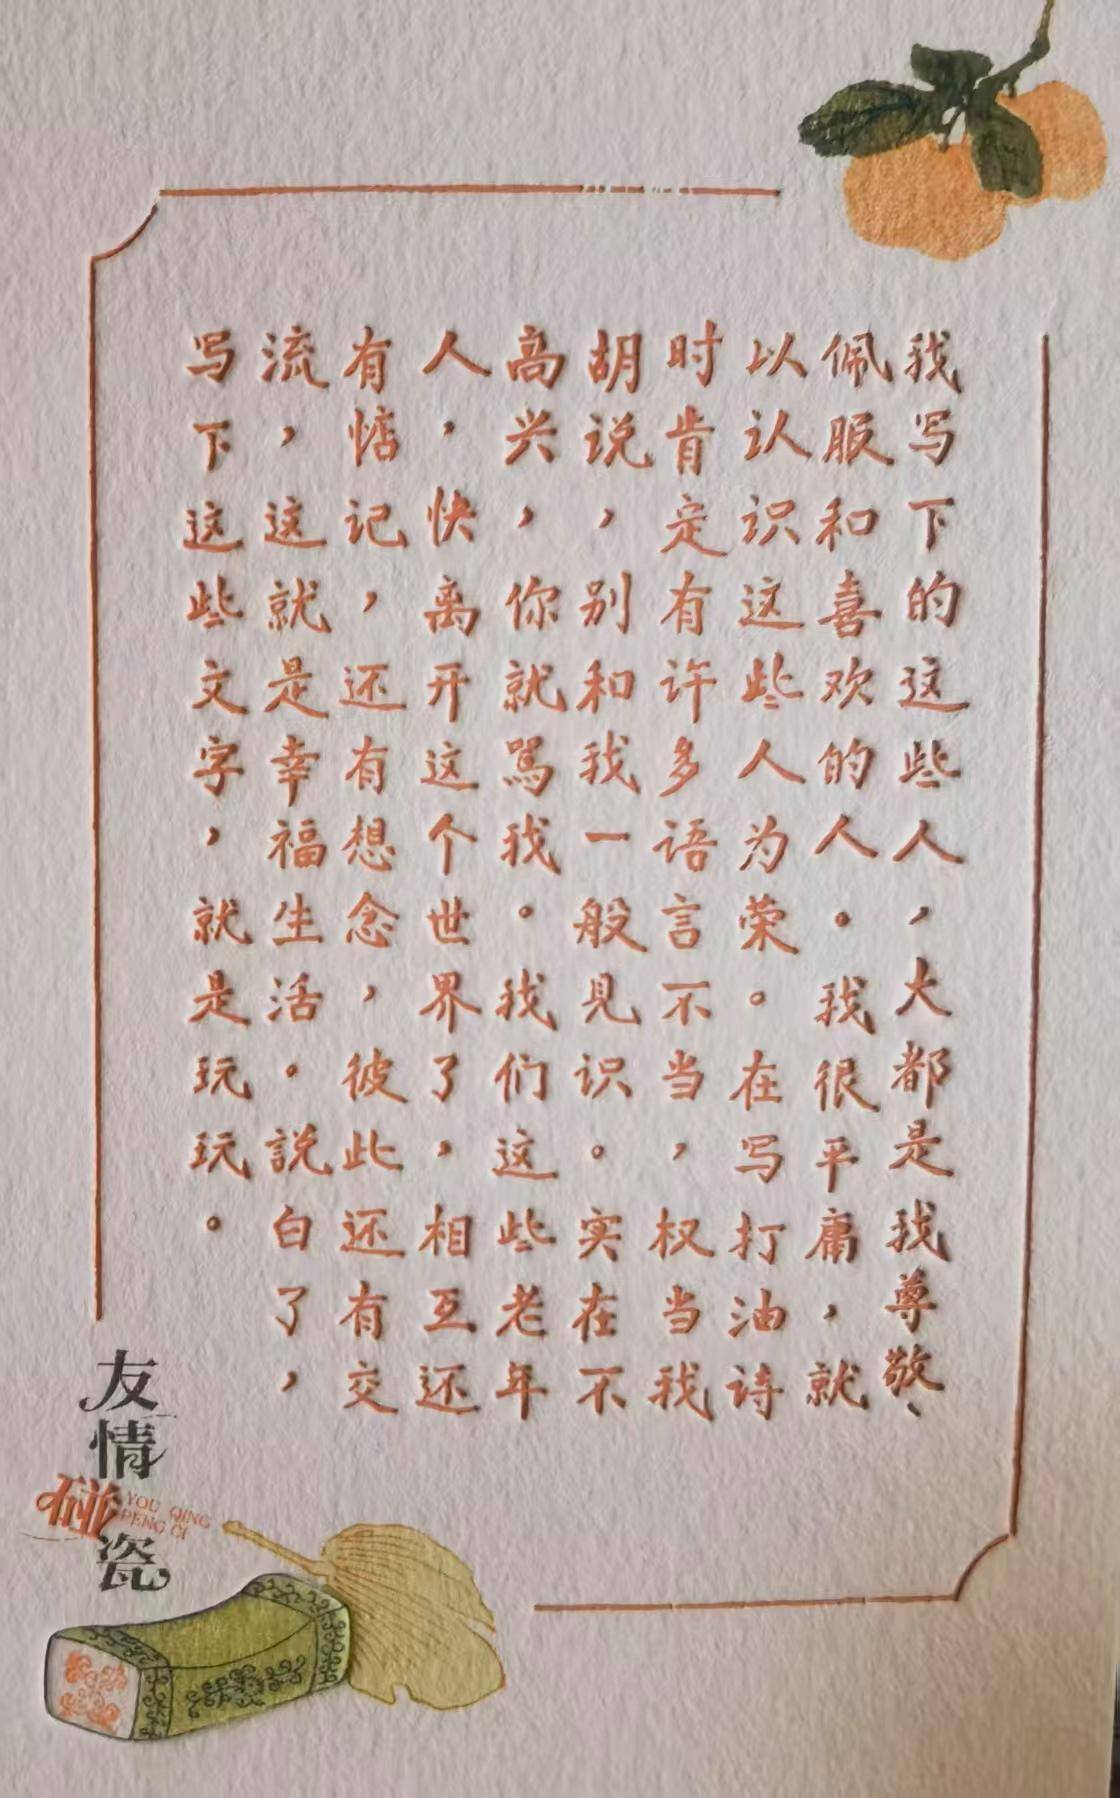 我写下的这些人，大都是我尊敬、
佩服和喜欢的人。我很平庸，就
以认识这些人为荣。在写打油诗
时肯定有许多语言不当，权当我
胡说，别和我一般见识。实在不
高兴，你就骂我。我们这些老年
人，快离开这个世界了，相互还
有惦记，还有想念，彼此还有交
流，这就是幸福生活。説白了，
写下这些文字，就是玩玩。
友情碰瓷
YOU QING
PENG CI